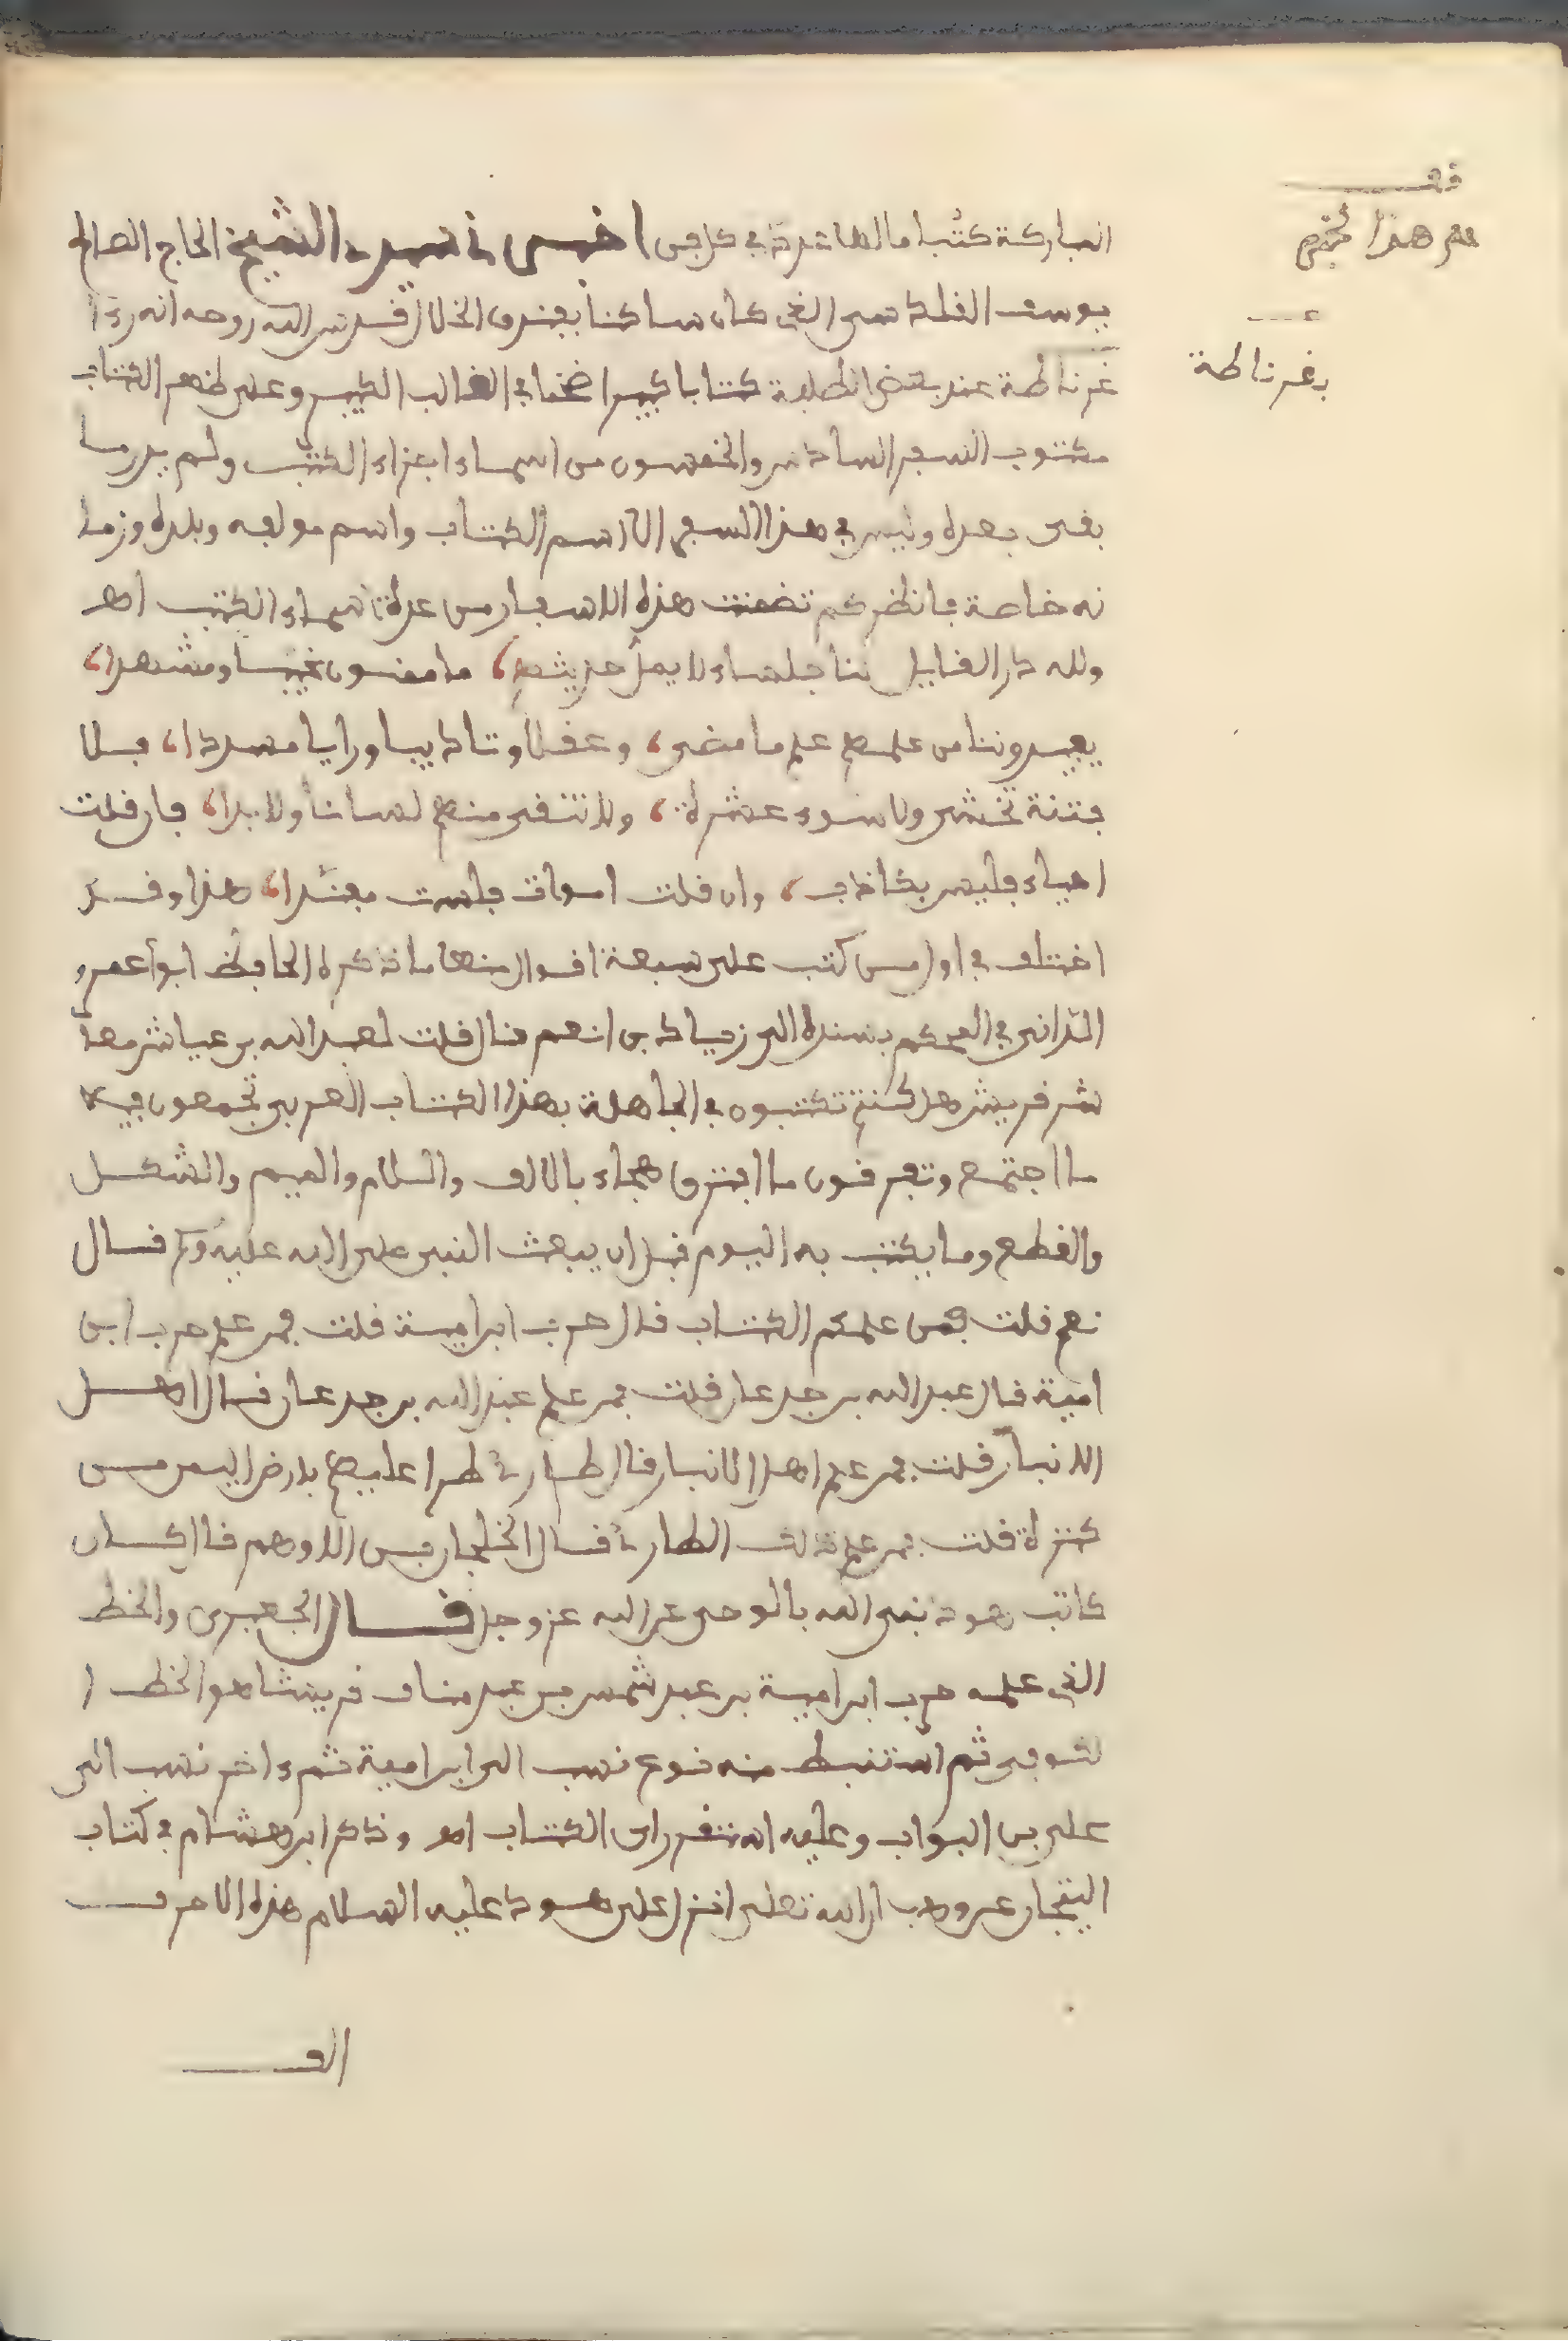 قف
على هذا تجده
بغرناطة
المباركة كتبا ما لها عدة في كل فن اخبرني سيدي الشيخ الحاج الصالح
يوسف الفلدسى الذى كان ساكنا بفندق الخلال قدس الله روحه انه رءا
غرناطة عند بعض الطلبة كتابا كبيرا ضخما في القالب الكبير وعلى ظهر الكتاب
مكتوب السفر السادس والخمسون من اسماء اجزاء الكتب ولم يدر ما
بقى بعده وليس في هذا السفر الا اسم الكتاب واسم مولفه وبلده وزما
نه خاصة فانظر كم تضمنت هذه الاسفار من عدة اسماء الكتب اهـ
ولله در القايل لنا جلساء لا يمل حديثهم، مامنون غيبا ومشهدا،
يفيدوننا من علمهم علم ما مضى، وعقلا وتاديبا ورايا مسددا، بلا
فتنة تخشى ولا سوء عشرة، ولا نتقى منهم لسانا ولا يدا، فان قلت
احياء فليس بكاذب، وان قلت اموات فلست مفندا، هذا وقد
اختلف في اول من كتب على سبعة اقوال منها ما ذكره الحافظ ابو عمرو
الدانى في المحكم بسنده الى زياد بن انعم قال قلت لعبد الله بن عباس معا
شر قريش هل كنتم تكتبون في الجاهلية بهذا الكتاب العربى تجمعون فيه
ما اجتمع وتفرقون ما افترق هجاء بالالف واللام والميم والشكل
والقطع وما يكتب به اليوم قبل ان يبعث النبى صلى الله عليه وسلم قال
نعم قلت فمن علمكم الكتاب قال حرب ابن امية قلت فمن علم حرب ابن
امية قال عبد الله بن جدعان قلت فمن علم عبد الله بن جدعان قال اهل
الانبار قلت فمن علم اهل الانبار قال طارئ طرا عليهم بارض اليمن من
كندة قلت فمن علم ذلك الطارئ قال الخلجان بن الاوهم قال كان
كاتب هود نبى الله بالوحى عن الله عز وجل قال الجعبرى والخط
الذى علمه حرب ابن امية بن عبد شمس بن عبد مناف قريشا هو الخط ا
لكوفى ثم استنبط منه نوع نسب الى ابن امية ثم ءاخر نسب الى
على بن البواب وعليه استقر راى الكتاب اهـ وذكر ابن هشام في كتاب
التيجان عن وهب ان الله تعلى انزل على هود عليه السلام هذه الاحرف
الف